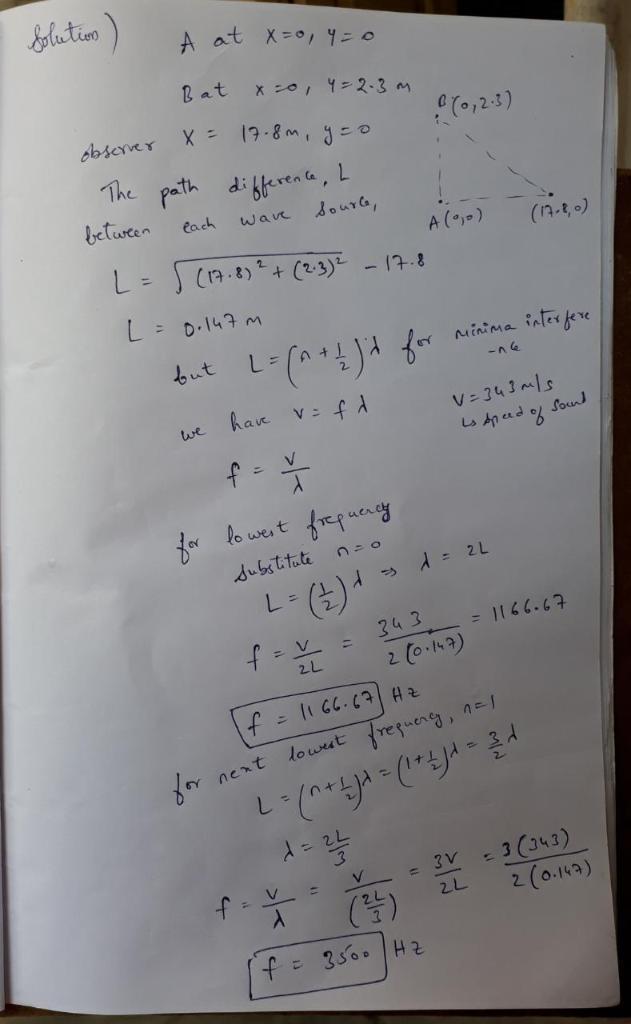 Solution) A at x=0, y=0
B at x=0, y=2.3 m
B(0,2.3)
observer x = 17.8m, y=0
The path difference, L
between each wave source,
A(0,0) (17.8,0)
L = √((17.8)² + (2.3)²) - 17.8
L = 0.147 m
but L = (n + 1/2)λ for minima interfere
-nce
we have v = fλ
v = 343 m/s
↳ speed of sound
f = v/λ
for lowest frequency
substitute n=0
L = (1/2)λ ⇒ λ = 2L
f = v/2L = 343/2(0.147) = 1166.67
f = 1166.67 Hz
for next lowest frequency, n=1
L = (n+1/2)λ = (1+1/2)λ = 3/2 λ
λ = 2L/3
f = v/λ = v/(2L/3) = 3v/2L = 3(343)/2(0.147)
f = 3500 Hz